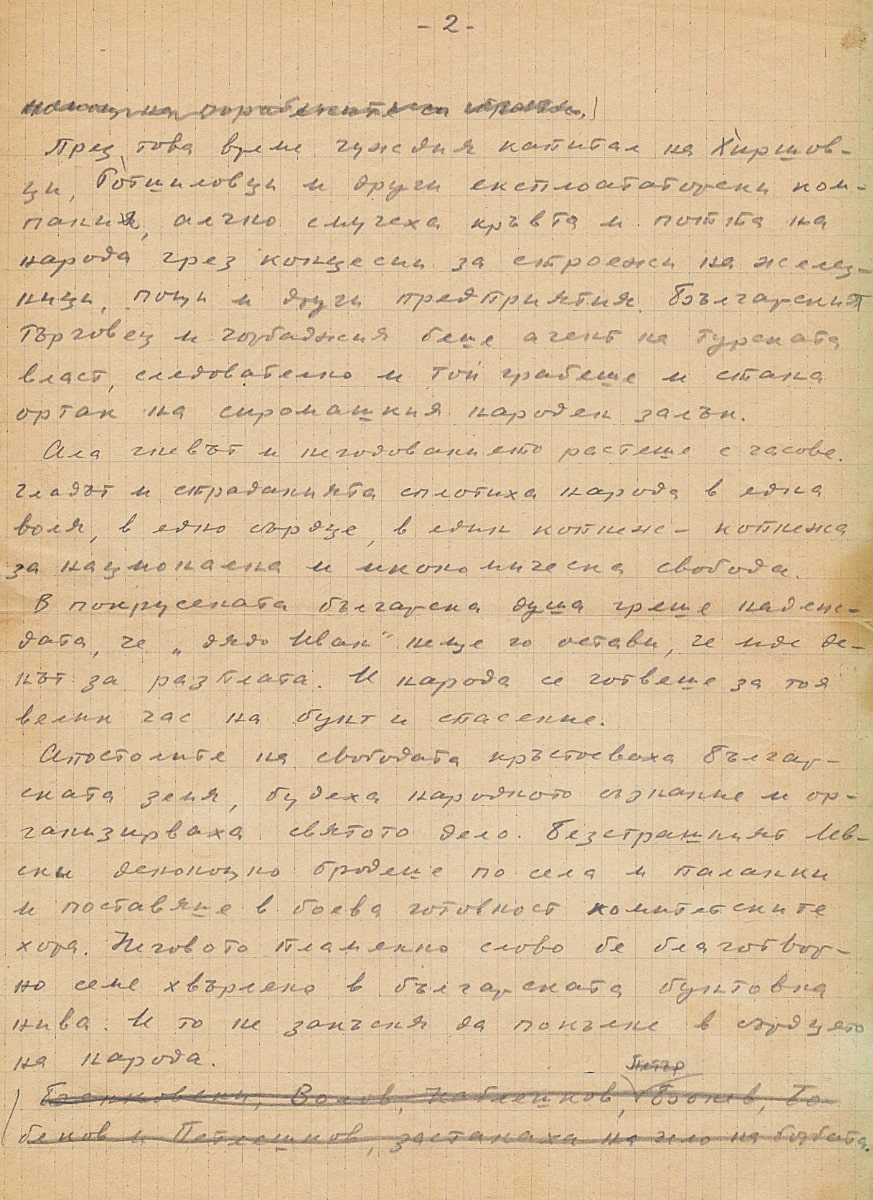 - 2 -
помощ на поробените си братя.
През това време чуждия капитал на Хиршов-
ци, Ротшиловци и други експлоататорски ком-
пания, алчно смучеха кръвта и потта на
народа чрез концесии за строежи на желез-
ници, пощи и други предприятия. Българския
търговец и чорбаджия беше агент на турската
власт, следователно и той грабеше и стана
ортак на сиромашкия народен залък.
Ала гневът и негодованието растеше с часове.
Гладът и страданията сплотиха народа в една
воля, в едно сърдце, в един копнеж – копнежа
за национална и икономическа свобода.
В покрусената българска душа грееше надеж-
дата, че „дядо Иван" неще го остави, че иде де-
нят за разплата. И народа се готвеше за тоя
велик час на бунт и спасение.
Апостолите на свободата кръстосваха Българ-
ската земя, будеха народното съзнание и ор-
ганизирваха святото дело. Безстрашният Лев-
ски денонощно бродеше по села и паланки
и поставяше в боева готовност комитетските
хора. Неговото пламенно слово бе благотвор-
но семе хвърлено в българската бунтовна
нива. И то не закъсня да покълне в сърдцето
на народа.
Петър
Бенковски, Волов, Каблешков, Бонев, Бо-
беков и Петлешков, застанаха на чело на борбата.